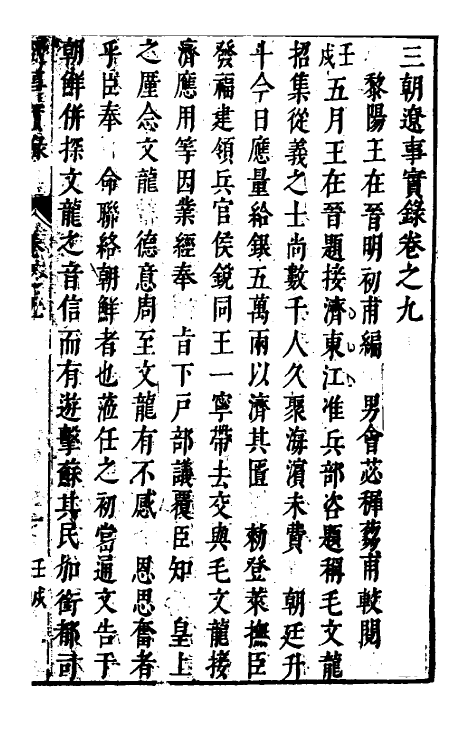 三朝遼事實錄卷之九
黎陽王在晉明初甫編　男會苾穉蒭甫較閱
壬戌五月王在晉題接濟東江准兵部咨題稱毛文龍
招集從義之士尚數千人久聚海濱未費　朝廷升
斗今日應量給銀五萬兩以濟其匱　勑登萊撫臣
發福建領兵官侯銳同王一寧帶去交與毛文龍接
濟應用等因業經奉　旨下戶部議覆臣知　皇上
之厪念文龍　德意周至文龍有不感　恩思奮者
乎臣奉　命聯絡朝鮮者也蒞任之初當通文告于
朝鮮併探文龍之音信而有遊擊蘇其民加銜都司
事實錄　卷之九　壬戌